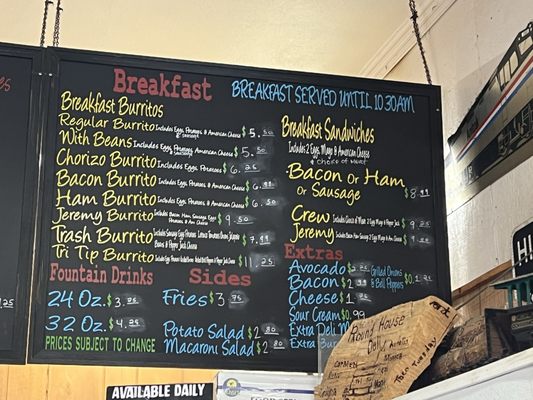 Breakfast
BREAKFAST SERVED UNTIL 10:30AM
Breakfast Burritos
Regular Burrito Includes Eggs, Potatoes & American Cheese $5.50
With Beans Includes Eggs, Potatoes & American Cheese $5.50
Chorizo Burrito Includes Eggs, Potatoes $6.25
Bacon Burrito Includes Eggs, Potatoes & American Cheese $6.99
Ham Burrito Includes Eggs, Potatoes & American Cheese $6.50
Jeremy Burrito Includes Bacon Ham Sausage Eggs $9.50
Trash Burrito $7.99
Tri Tip Burrito $11.25
Fountain Drinks
24 Oz. $3.25
32 Oz. $4.25
PRICES SUBJECT TO CHANGE
Sides
Fries $3.75
Potato Salad $2.80
Macaroni Salad $2.80
Breakfast Sandwiches
Includes 2 Eggs, Mayo & American Cheese
& choice of meat
Bacon Or Ham
Or Sausage $8.99
Crew $9.25
Jeremy $9.25
Extras
Avocado $
Bacon $2
Cheese $1
Sour Cream $0.99
Extra Deli
Extra
Grilled Onions
& Bell Peppers $0.
AVAILABLE DAILY
Round House
Deli
Tuesday